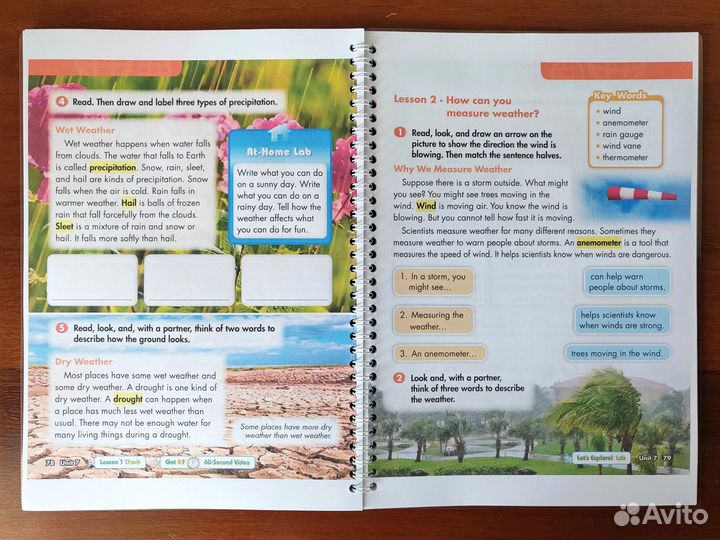 4 Read. Then draw and label three types of precipitation.
Wet Weather
Wet weather happens when water falls
from clouds. The water that falls to Earth
is called precipitation. Snow, rain, sleet,
and hail are kinds of precipitation. Snow
falls when the air is cold. Rain falls in
warmer weather. Hail is balls of frozen
rain that fall forcefully from the clouds.
Sleet is a mixture of rain and snow or
hail. It falls more softly than hail.
At-Home Lab
Write what you can do
on a sunny day. Write
what you can do on a
rainy day. Tell how the
weather affects what
you can do for fun.
5 Read, look, and, with a partner, think of two words to
describe how the ground looks.
Dry Weather
Most places have some wet weather and
some dry weather. A drought is one kind of
dry weather. A drought can happen when
a place has much less wet weather than
usual. There may not be enough water for
many living things during a drought.
Some places have more dry
weather than wet weather.
78 Unit 7 Lesson 1 Check Got it? 60-Second Video
Lesson 2 · How can you
measure weather?
Key Words
• wind
• anemometer
• rain gauge
• wind vane
• thermometer
1 Read, look, and draw an arrow on the
picture to show the direction the wind is
blowing. Then match the sentence halves.
Why We Measure Weather
Suppose there is a storm outside. What might
you see? You might see trees moving in the
wind. Wind is moving air. You know the wind is
blowing. But you cannot tell how fast it is moving.
Scientists measure weather for many different reasons. Sometimes they
measure weather to warn people about storms. An anemometer is a tool that
measures the speed of wind. It helps scientists know when winds are dangerous.
1. In a storm, you
might see...
can help warn
people about storms.
2. Measuring the
weather...
helps scientists know
when winds are strong.
3. An anemometer...
trees moving in the wind.
2 Look and, with a partner,
think of three words to describe
the weather.
Let's Explore! Lab Unit 7 79
Avito